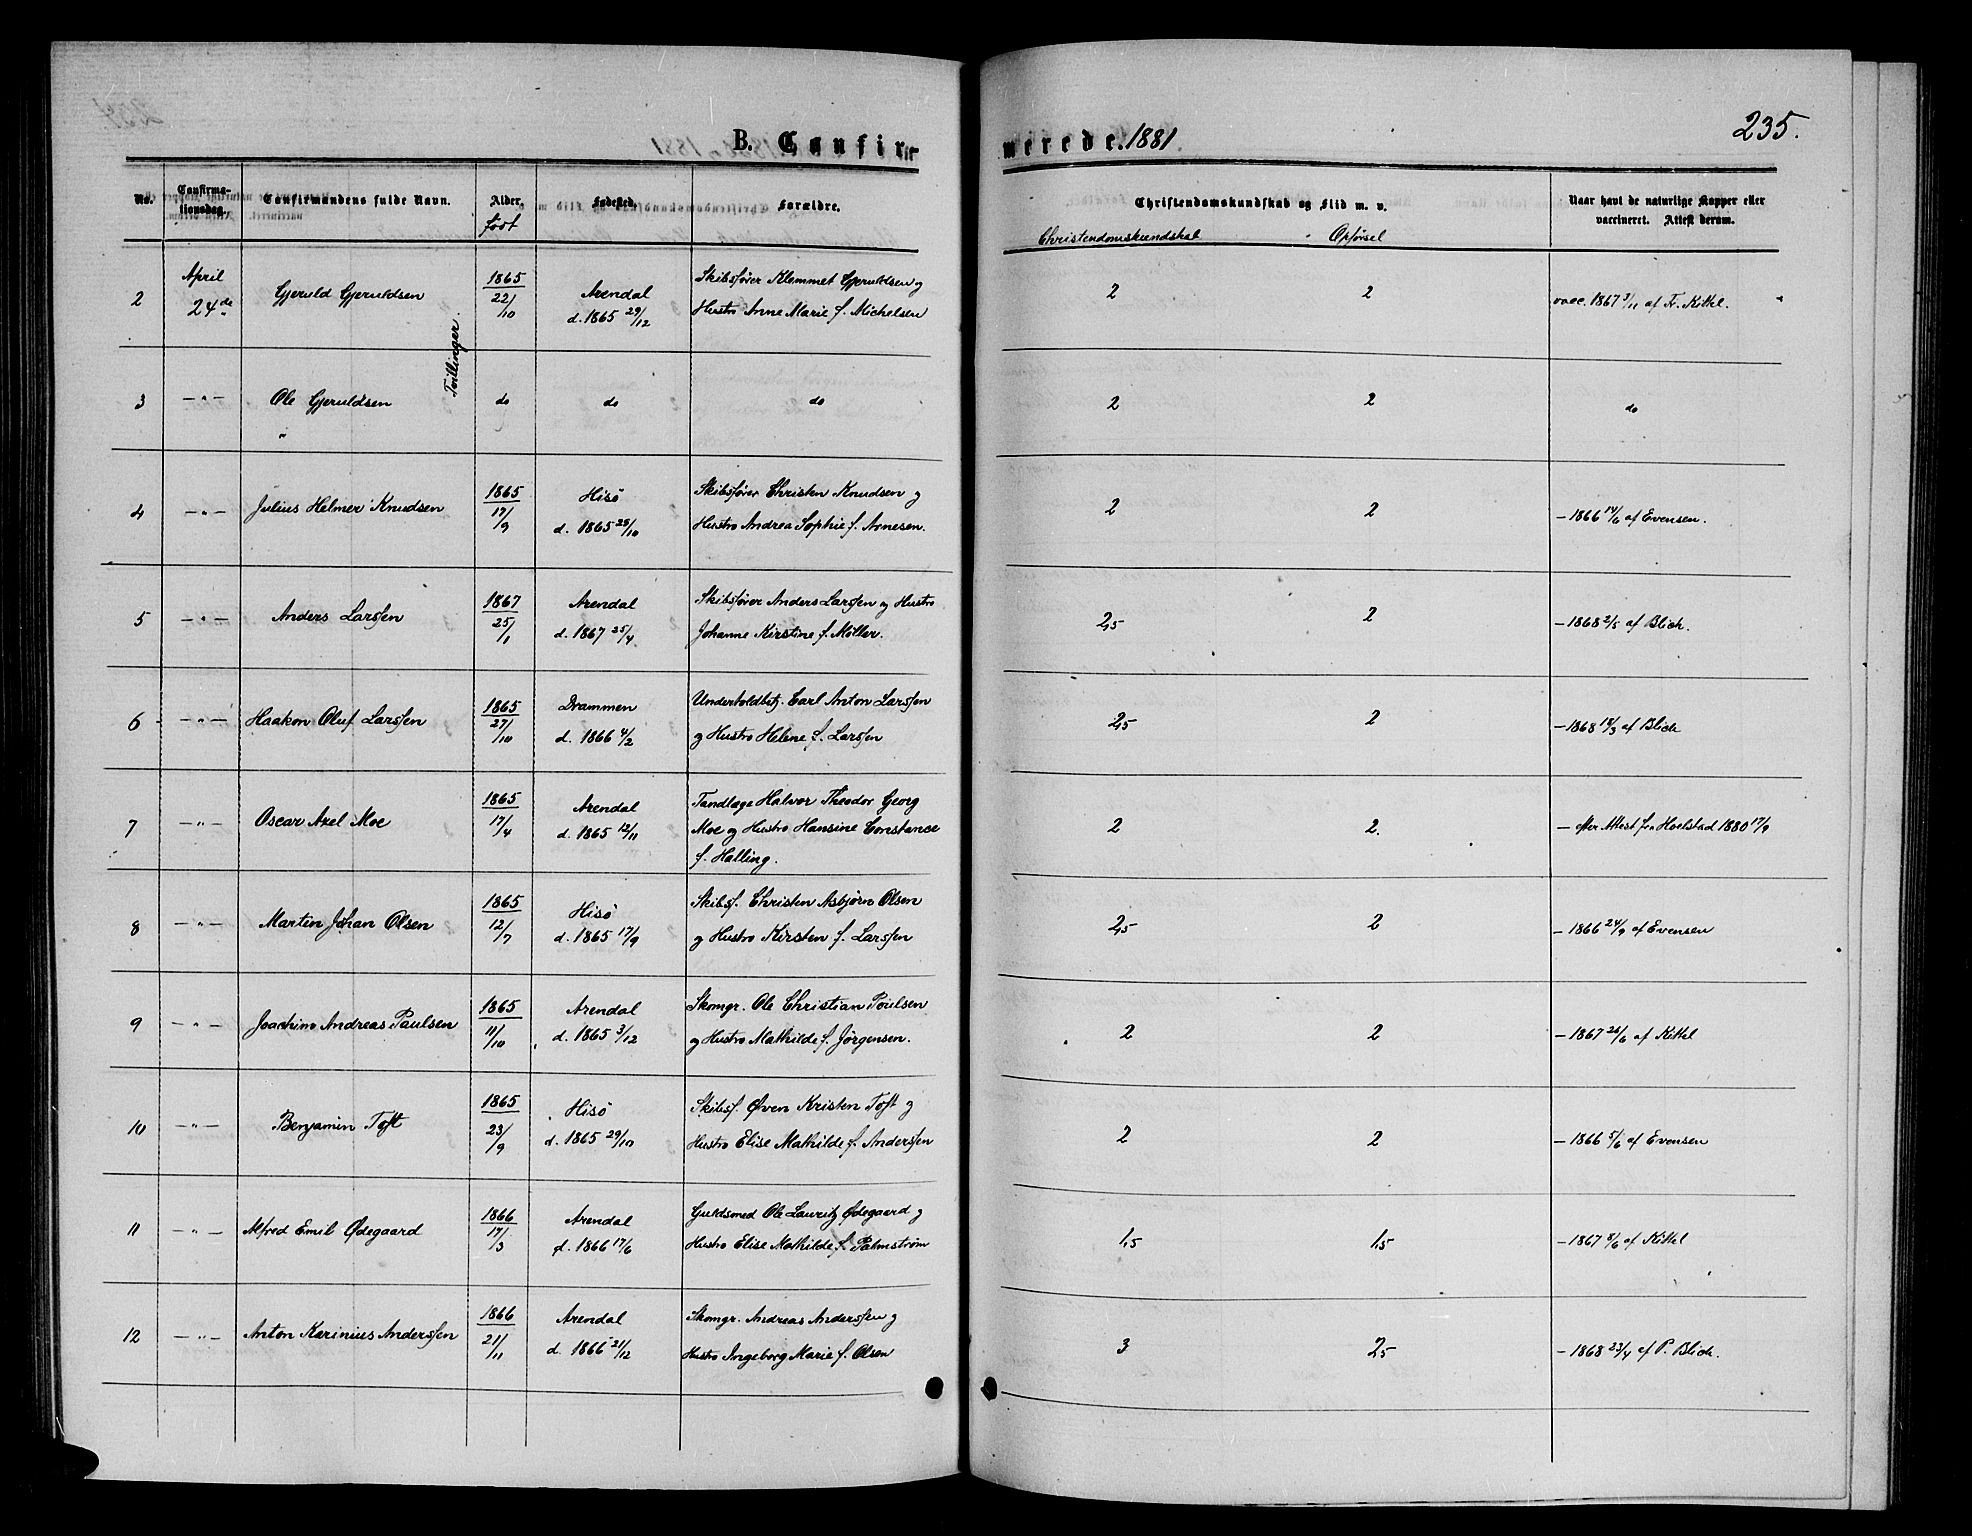 235.
B. Confirmerede. 1881
No.
Confirmationsdag.
Confirmandens fulde Navn.
Alder.
født
Fødested.
Forældre.
Christendomskundskab og Flid m. v.
Christendomskundskab Opførsel
Naar havt de naturlige Kopper eller
vaccineret. Attest derom.
2 April 24de Gjeruld Gjeruldsen 1865 22/10 Arendal d. 1865 29/12 Skibsfører Klemmet Gjeruldsen og
Hustro Anne Marie f. Michelsen 2 2 vacc. 1867 3/11 af Fr. Kittel.
Tvillinger.
3 -"- Ole Gjeruldsen do do do 2 2 do
"
4 -"- Julius Helmer Knudsen 1865 17/9 Hisö d. 1865 25/10 Skibsfører Christen Knudsen og
Hustro Andrea Sophie f. Arnesen. 2 2 - 1866 14/6 af Evensen.
5 -"- Anders Larssen 1867 25/1 Arendal d. 1867 25/4 Skibsfører Anders Larssen og Hustro
Johanne Kirstine f. Møller. 2,5 2 - 1868 2/5 af Blich.
6 -"- Haakon Oluf Larssen 1865 27/10 Drammen d. 1866 4/2 Undertoldbtj. Carl Anton Larssen
og Hustro Helene f. Larssen 2,5 2 - 1868 18/3 af Blich
7 -"- Oscar Axel Moe 1865 17/4 Arendal d. 1865 12/11 Tandlæge Halvor Theodor Georg
Moe og Hustro Hansine Constance
f. Halling. 2 2. - efter Attest fra Hoelstad 1880 17/9
8 -"- Marten Johan Olsen 1865 12/7 Hisö d. 1865 17/9 Skibsf. Christen Asbjørn Olsen
og Hustro Kirsten f. Larssen 2,5 2 - 1866 24/9 af Evensen
9 -"- Joachino Andreas Paulsen 1865 11/10 Arendal d. 1865 3/12 Skomgr. Ole Christian Poulsen
og Hustro Mathilde f. Jørgensen. 2 2 - 1867 26/6 af Kittel
10 -"- Benjamin Toft 1865 23/9 Hisö d. 1865 29/10 Skibsf. Øven Kristen Toft og
Hustro Elise Mathilde f. Anderssen 2 2 - 1866 5/6 af Evensen
11 -"- Alfred Emil Ødegaard 1866 17/3 Arendal d. 1866 17/6 Guldsmed Ole Lauritz Ødegaard og
Hustro Elise Mathilde f. Palmstrøm 1,5 1,5 - 1867 8/6 af Kittel
12 -"- Anton Karinius Anderssen 1866 21/11 Arendal d. 1866 21/12 Skomgr. Andreas Anderssen og
Hustro Ingeborg Marie f. Olsen 3 2,5 - 1868 23/4 af P. Blich.